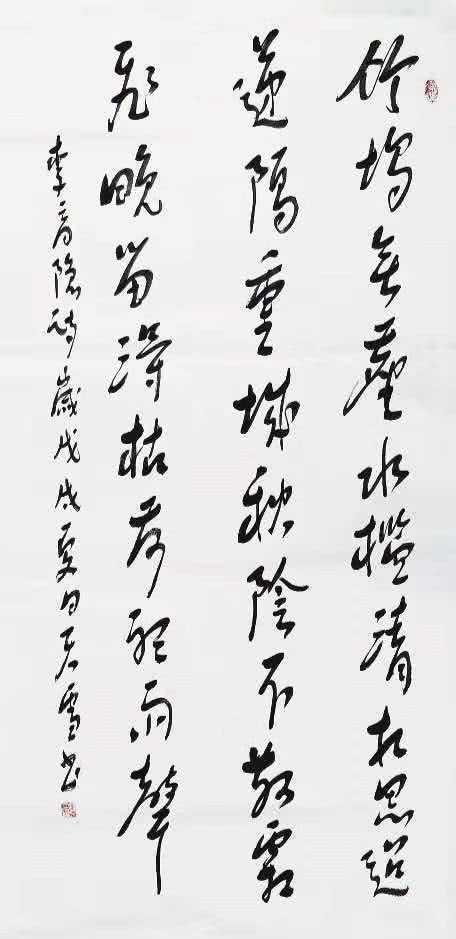 竹塢無塵水檻清相思迢
遞隔重城秋陰不散霜
飛晚留得枯荷聽雨聲
李商隱詩歲戊戌夏日雪书